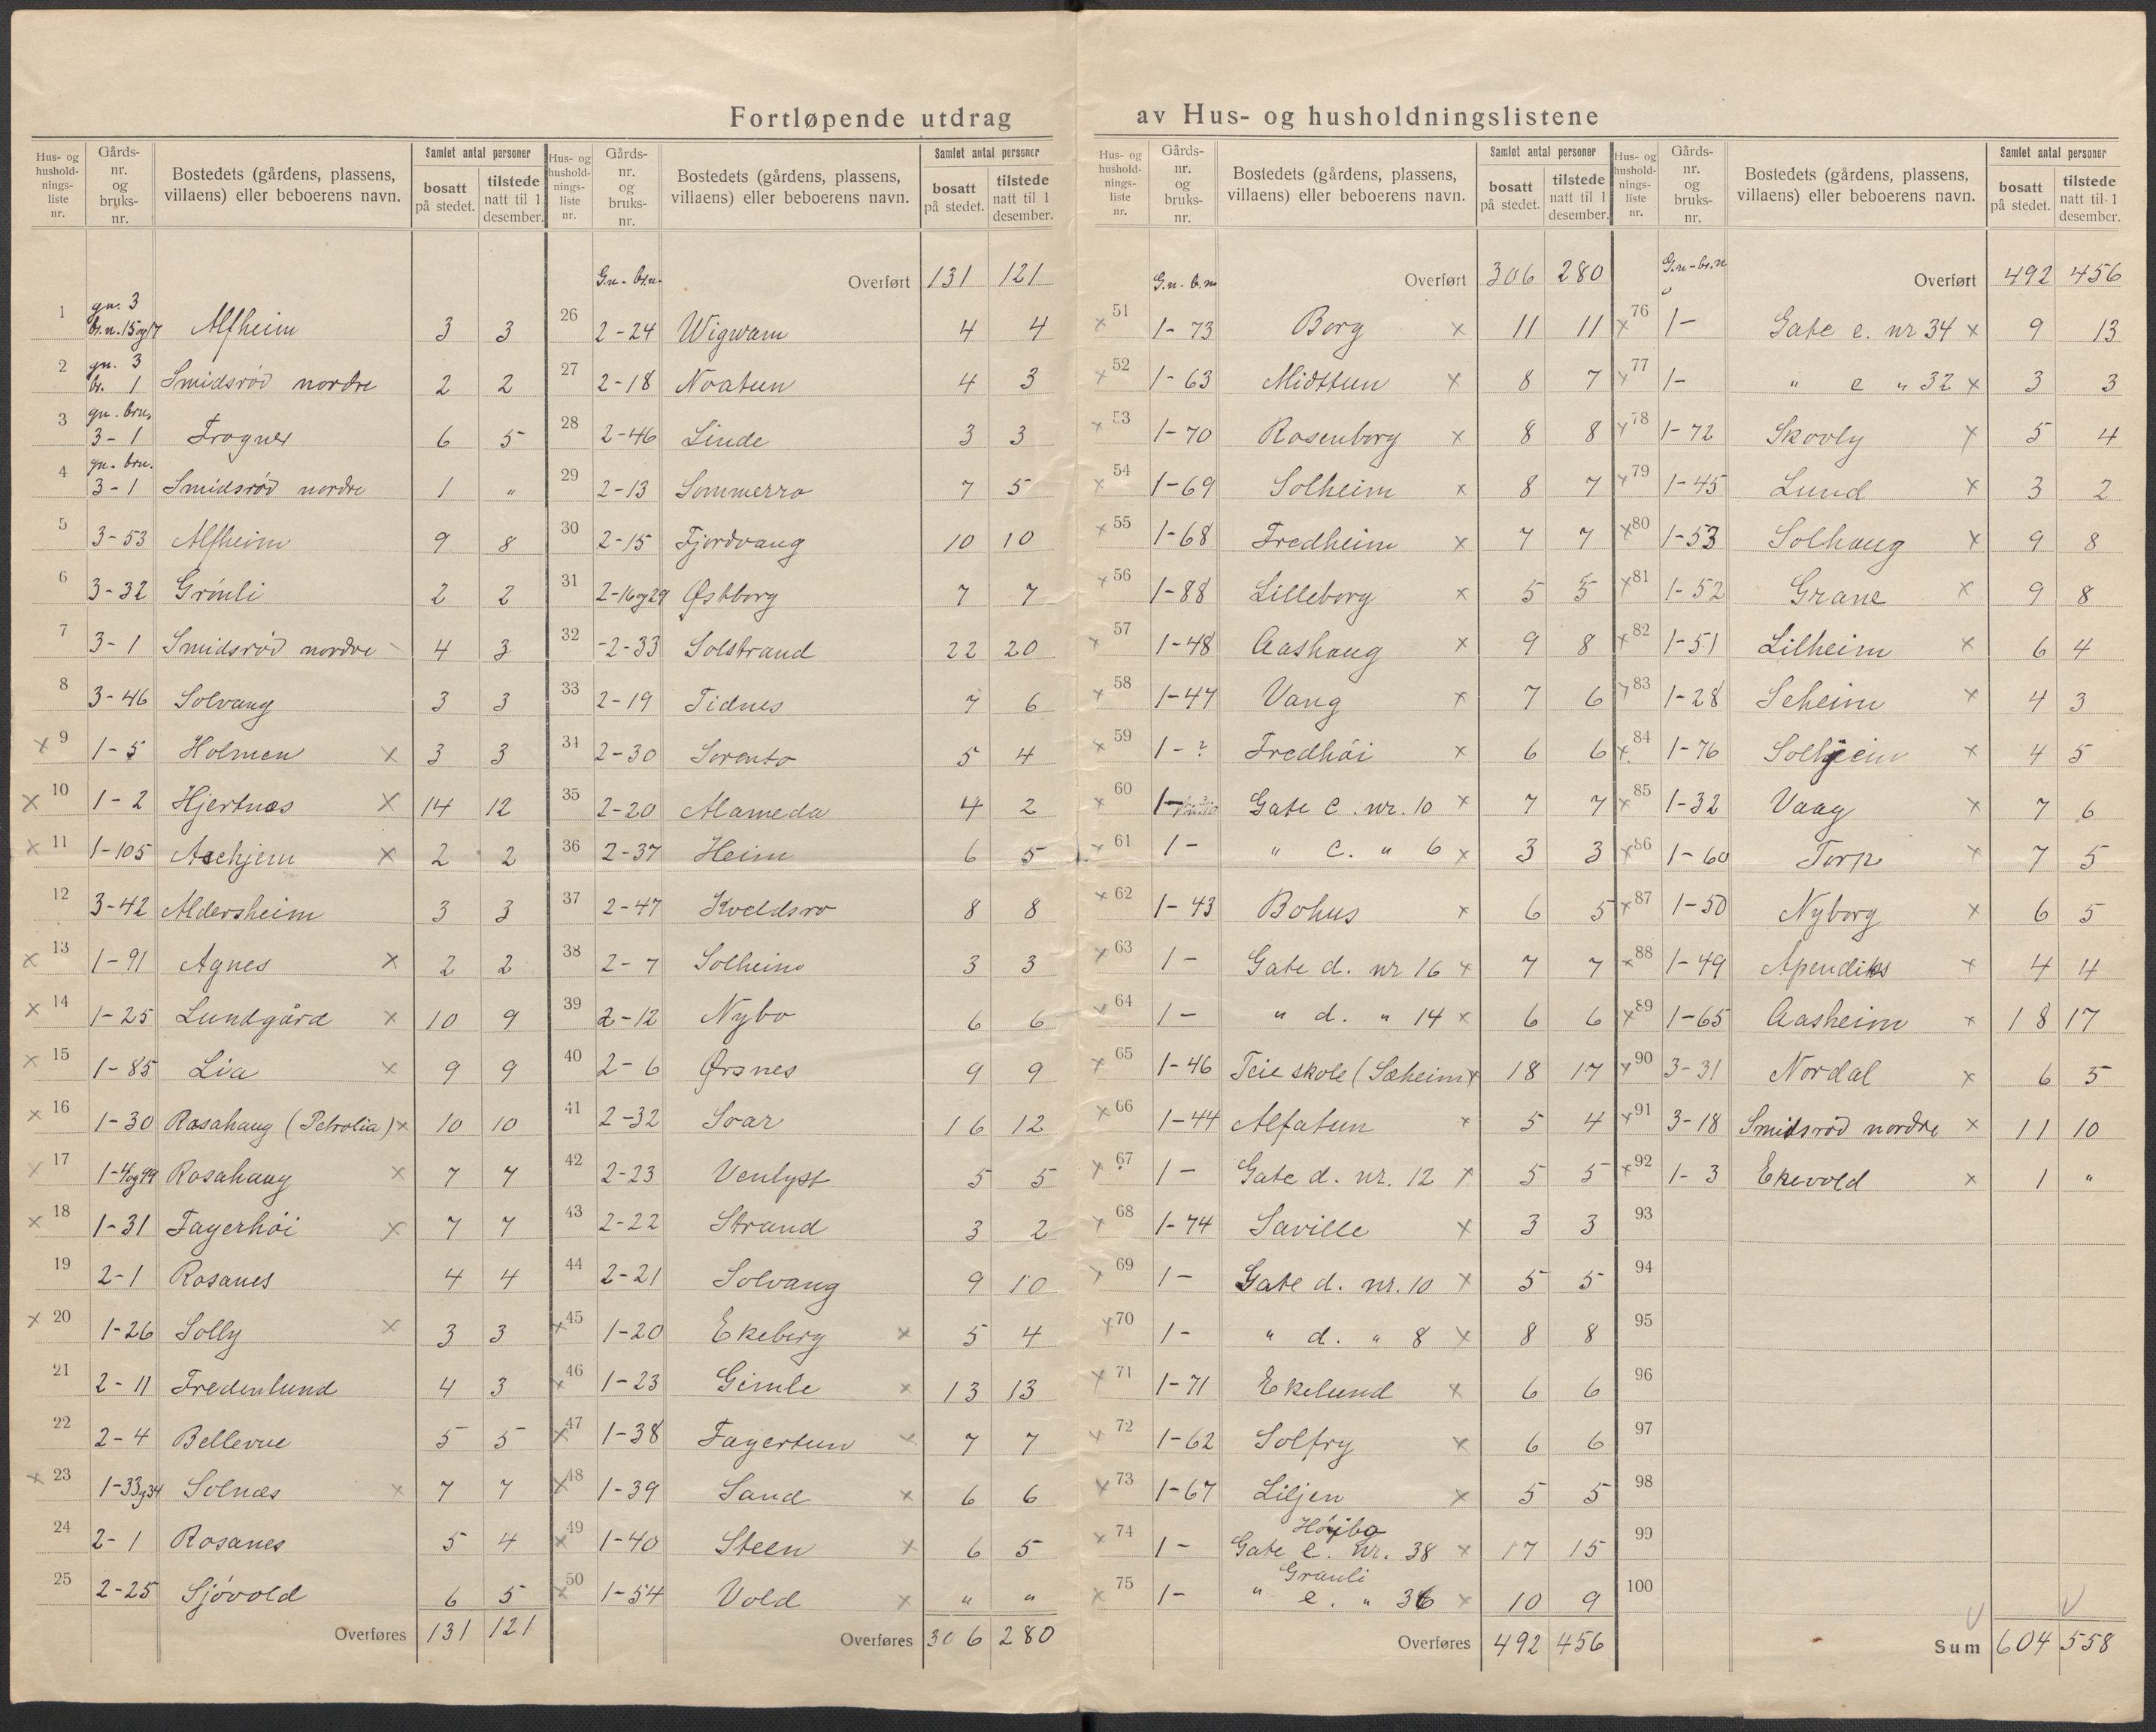 Fortløpende utdrag av Hus- og husholdningslistene
Hus- og hushold-nings-liste nr. Gårds-nr. og bruks-nr. Bostedets (gårdens, plassens, villaens) eller beboerens navn. Samlet antal personer bosatt på stedet. tilstede natt til 1 desember.
1 gn. 3 br.n. 15 og 17 Alfheim 3 3
2 gn. 3 br. 1 Smidsrød nordre 2 2
3 gn. brn. 3-1 Frogner 6 5
4 gn. brn. 3-1 Smidsrød nordre 1 "
5 3-53 Alfheim 9 8
6 3-32 Grønli 2 2
7 3-1 Smidsrød nordre 4 3
8 3-46 Solvang 3 3
x 9 1-5 Holmen x 3 3
x 10 1-2 Hjertnes x 14 12
x 11 1-105 Aschjem x 2 2
12 3-42 Aldersheim 3 3
x 13 1-91 Agnes x 2 2
x 14 1-25 Lundgård x 10 9
x 15 1-85 Lia x 9 9
x 16 1-30 Rosahaug (Petrolia) x 10 10
x 17 1-4og99 Rosahaug x 7 7
x 18 1-31 Fagerhøi x 7 7
19 2-1 Rosanes 4 4
x 20 1-26 Solly x 3 3
21 2-11 Fredenlund 4 3
22 2-4 Bellevue 5 5
x 23 1-33og34 Solnæs x 7 7
24 2-1 Rosanes 5 4
25 2-25 Sjøvold 6 5
Overføres 131 121
Hus- og hushold-nings-liste nr. Gårds-nr. og bruks-nr. Bostedets (gårdens, plassens, villaens) eller beboerens navn. Samlet antal personer bosatt på stedet. tilstede natt til 1 desember.
G.n. - br.n. Overført 131 121
26 2-24 Wigwam 4 4
27 2-18 Noatun 4 3
28 2-46 Linde 3 3
29 2-13 Sommerro 7 5
30 2-15 Fjordvang 10 10
31 2-16og29 Østborg 7 7
32 -2-33 Solstrand 22 20
33 2-19 Tidnes 7 6
34 2-30 Sorento 5 4
35 2-20 Alameda 4 2
36 2-37 Heim 6 5
37 2-47 Kveldsro 8 8
38 2-7 Solheim 3 3
39 2-12 Nybo 6 6
40 2-6 Ørsnes 9 9
41 2-32 Svar 16 12
42 2-23 Venlyst 5 5
43 2-22 Strand 3 2
44 2-21 Solvang 9 10
x 45 1-20 Ekeberg x 5 4
x 46 1-23 Gimle x 13 13
x 47 1-38 Fagertun x 7 7
x 48 1-39 Sand x 6 6
x 49 1-40 Steen x 6 5
x 50 1-54 Vold x " "
Overføres 306 280
Hus- og hushold-nings-liste nr. Gårds-nr. og bruks-nr. Bostedets (gårdens, plassens, villaens) eller beboerens navn. Samlet antal personer bosatt på stedet. tilstede natt til 1 desember.
G.n. - b.nr Overført 306 280
x 51 1-73 Borg x 11 11
x 52 1-63 Midttun x 8 7
x 53 1-70 Rosenborg x 8 8
x 54 1-69 Solheim x 8 7
x 55 1-68 Fredheim x 7 7
x 56 1-88 Lilleborg x 5 5
x 57 1-48 Aashaug x 9 8
x 58 1-47 Vang x 7 6
x 59 1-? Fredhøi x 6 6
x 60 1- Gate c. nr. 10 x 7 7
x 61 1- " c. " 6 x 3 3
x 62 1-43 Bohus x 6 5
x 63 1- Gate d. nr 16 x 7 7
x 64 1- " d. " 14 x 6 6
x 65 1-46 Teie skole (Sæheim) x 18 17
x 66 1-44 Alfatun x 5 4
x 67 1- Gate d. nr. 12 x 5 5
x 68 1-74 Saville x 3 3
x 69 1- Gate d. nr. 10 x 5 5
x 70 1- " d. " 8 x 8 8
x 71 1-71 Ekelund x 6 6
x 72 1-62 Solfry x 6 6
x 73 1-67 Liljen x 5 5
Høybo
x 74 1- Gate e. nr. 38 x 17 15
Granli
x 75 1- " e. " 36 x 10 9
Overføres 492 456
Hus- og hushold-nings-liste nr. Gårds-nr. og bruks-nr. Bostedets (gårdens, plassens, villaens) eller beboerens navn. Samlet antal personer bosatt på stedet. tilstede natt til 1 desember.
G.n - br.n Overført 492 456
x 76 1- Gate e. nr 34 x 9 13
x 77 1- " e " 32 x 3 3
x 78 1-72 Skovly x 5 4
x 79 1-45 Lund x 3 2
x 80 1-53 Solhaug x 9 8
x 81 1-52 Grane x 9 8
x 82 1-51 Lilheim x 6 4
x 83 1-28 Seheim x 4 3
x 84 1-76 x 4 5
x 85 1-32 Vaag x 7 6
x 86 1-60 Torp x 7 5
x 87 1-50 Nyborg x 6 5
x 88 1-49 Apendiks x 4 4
x 89 1-65 Aasheim x 18 17
x 90 3-31 Nordal x 6 5
x 91 3-18 Smidsrød nordre x 11 10
x 92 1-3 Ekevold x 1 "
93
94
95
96
97
98
99
100
Sum 604 558